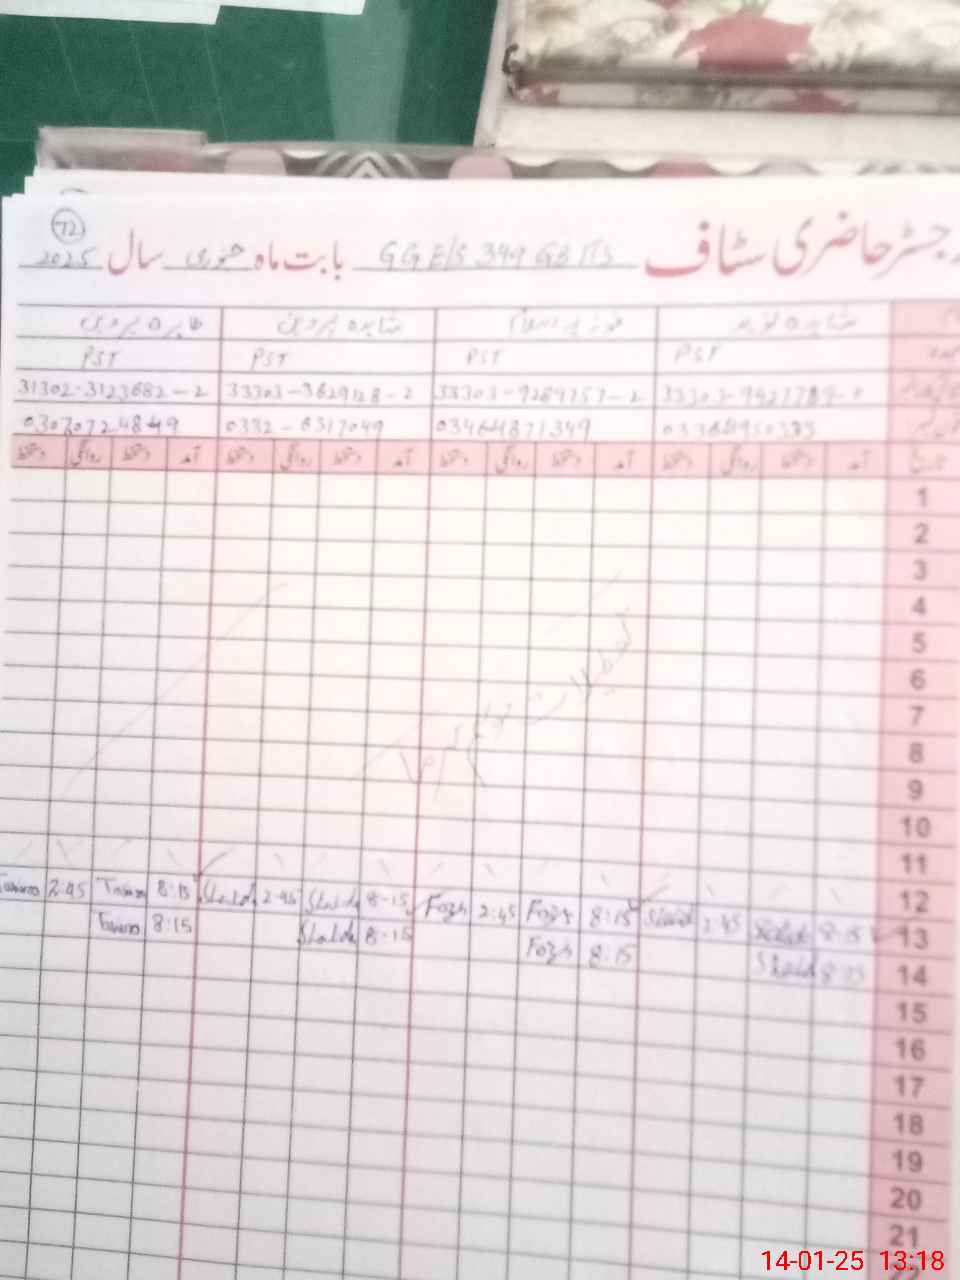 رجسٹر حاضری سٹاف GG E/S 349 GB TTS بابت ماہ جنوری سال 2025
72
شاہدہ نوید فوزیہ اسلام شاہدہ پروین طاہرہ پروین
PST PST PST PST
33303-9427789- 33303-9289757-2 33303-3629128-2 31302-3123682-2
03464871349 0332-6317049 03070724849
تاریخ آمد دستخط روانگی دستخط آمد دستخط روانگی دستخط آمد دستخط روانگی دستخط آمد دستخط روانگی دستخط
1
2
3
4
5
6
7
8
9
10
11
تعطیلات موسم سرما
12
13 8:15 2:45 8:15 Fozia 2:45 Fozia 8-15 Shahida 2-45 Shahida 8:15 2:45
14 8:15 Fozia 8-15 Shahida 8:15
15
16
17
18
19
20
21
14-01-25 13:18